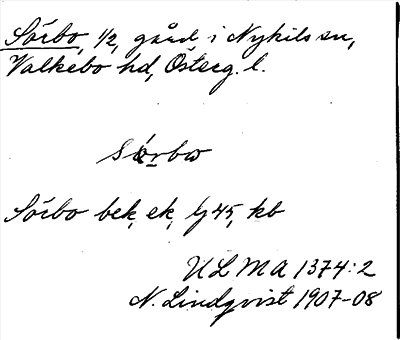 Sörbo, 1/2, gård i Nykils sn,
Valkebo hd, Österg. l.
Sörbo bek, ek, lj 45, kb
ULMA 1374:2
N. Lindqvist 1907-08